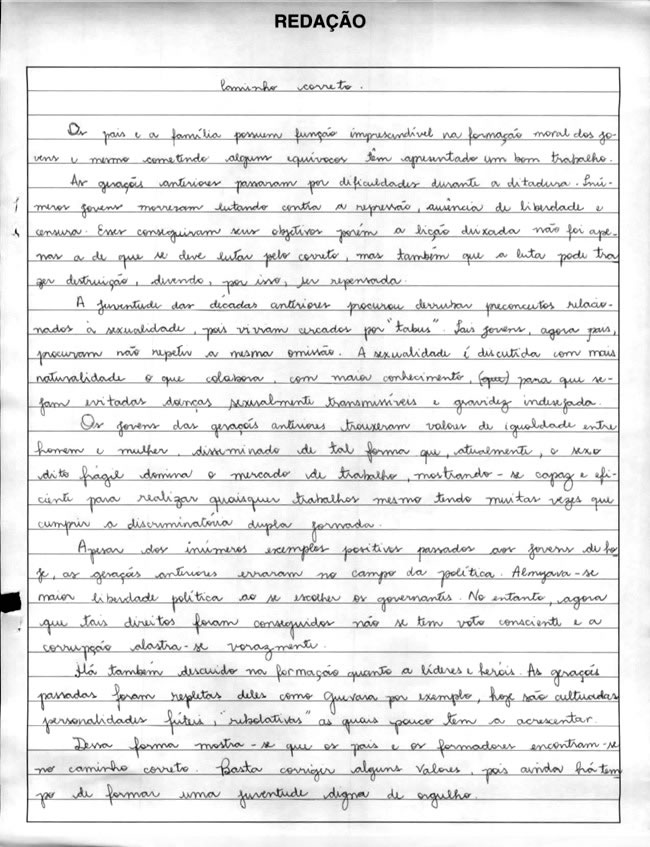 REDAÇÃO
Caminho correto.
Os pais e a família possuem função imprescindível na formação moral dos jo-
vens e mesmo cometendo alguns equívocos têm apresentado um bom trabalho.
As gerações anteriores passaram por dificuldades durante a ditadura. Inú-
meros jovens morreram lutando contra a repressão, ausência de liberdade e
censura. Esses conseguiram seus objetivos porém a lição deixada não foi ape-
nas a de que se deve lutar pelo correto, mas também que a luta pode tra
zer destruição, devendo, por isso, ser repensada.
A juventude das décadas anteriores procurou derrubar preconceitos relacio-
nados à sexualidade, pois viviam cercados por "tabus". Tais jovens, agora pais,
procuram não repetir a mesma omissão. A sexualidade é discutida com mais
naturalidade o que colabora, com maior conhecimento, (que) para que se-
jam evitadas doenças sexualmente transmissíveis e gravidez indesejada.
Os jovens das gerações anteriores trouxeram valores de igualdade entre
homem e mulher, disseminado de tal forma que, atualmente, o sexo
dito frágil domina o mercado de trabalho, mostrando-se capaz e efi-
ciente para realizar quaisquer trabalhos mesmo tendo muitas vezes que
cumprir a discriminatória dupla jornada.
Apesar dos inúmeros exemplos positivos passados aos jovens de ho
je, as gerações anteriores erraram no campo da política. Almejava-se
maior liberdade política ao se escolher os governantes. No entanto, agora
que tais direitos foram conseguidos não se tem voto consciente e a
corrupção alastra-se vorazmente.
Há também descuido na formação quanto a líderes e heróis. As gerações
passadas foram repletas deles como Guevara por exemplo, hoje são cultuadas
personalidades fúteis, "rebolativas" as quais pouco tem a acrescentar.
Dessa forma mostra-se que os pais e os formadores encontram-se
no caminho correto. Basta corrigir alguns valores, pois ainda há tem
po de formar uma juventude digna de orgulho.